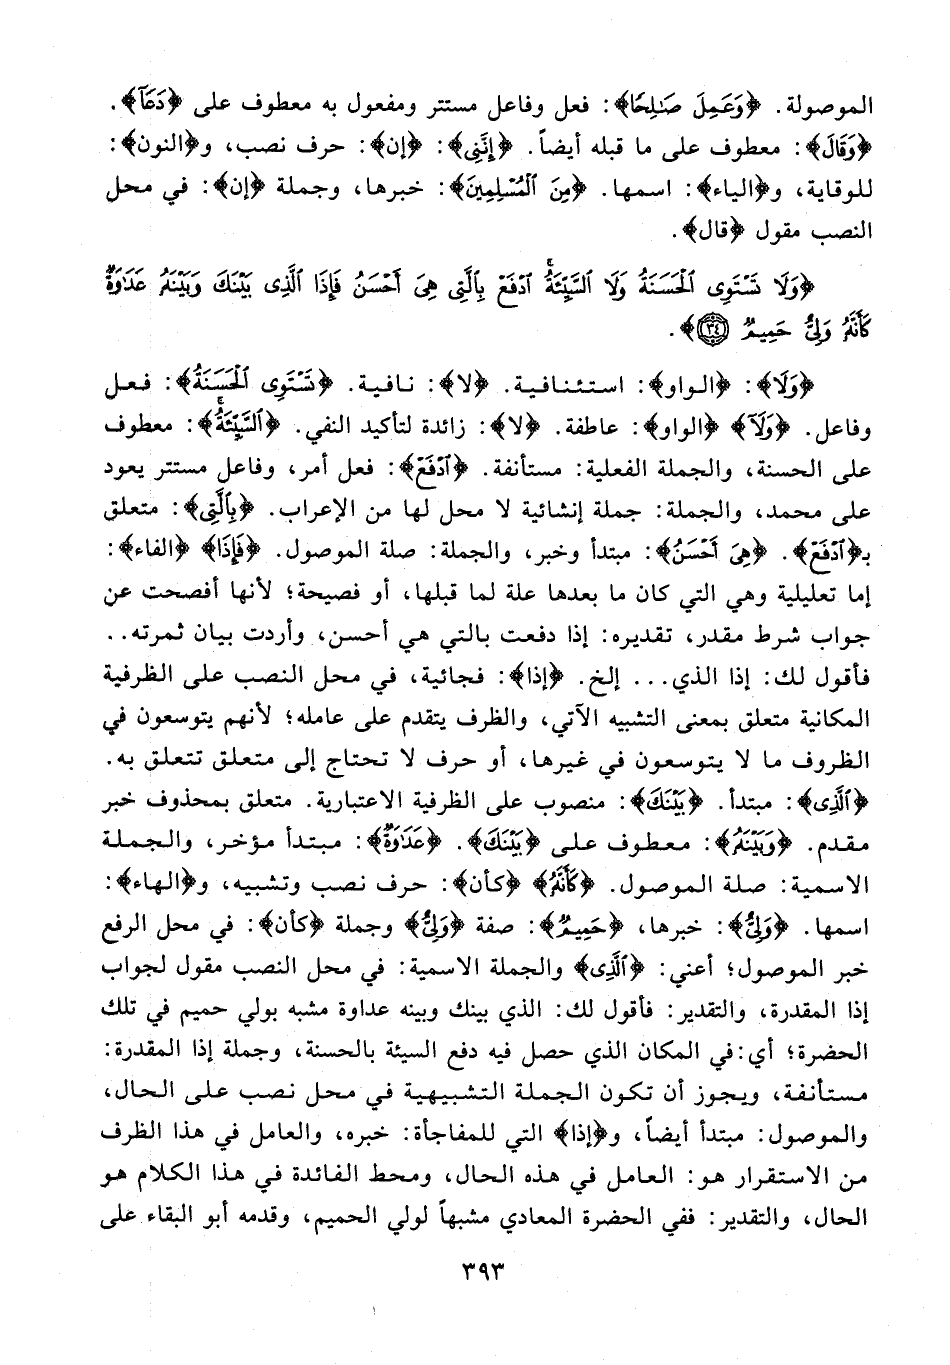 الموصولة. ﴿وَعَمِلَ صَٰلِحًا﴾: فعل وفاعل مستتر ومفعول به معطوف على ﴿دَعَآ﴾.
﴿وَقَالَ﴾: معطوف على ما قبله أيضاً. ﴿إِنَّنِى﴾: ﴿إن﴾: حرف نصب، و﴿النون﴾:
للوقاية، و﴿الياء﴾: اسمها. ﴿مِنَ ٱلْمُسْلِمِينَ﴾: خبرها، وجملة ﴿إن﴾: في محل
النصب مقول ﴿قال﴾.
﴿وَلَا تَسْتَوِى ٱلْحَسَنَةُ وَلَا ٱلسَّيِّئَةُ ۚ ٱدْفَعْ بِٱلَّتِى هِىَ أَحْسَنُ فَإِذَا ٱلَّذِى بَيْنَكَ وَبَيْنَهُۥ عَدَٰوَةٌ
كَأَنَّهُۥ وَلِىٌّ حَمِيمٌ ٣٤﴾.
﴿وَلَا﴾: ﴿الواو﴾: استئنافية. ﴿لا﴾: نافية. ﴿تَسْتَوِى ٱلْحَسَنَةُ﴾: فعل
وفاعل. ﴿وَلَآ﴾ ﴿الواو﴾: عاطفة. ﴿لا﴾: زائدة لتأكيد النفي. ﴿ٱلسَّيِّئَةُ ۚ﴾: معطوف
على الحسنة، والجملة الفعلية: مستأنفة. ﴿ٱدْفَعْ﴾: فعل أمر، وفاعل مستتر يعود
على محمد، والجملة: جملة إنشائية لا محل لها من الإعراب. ﴿بِٱلَّتِى﴾: متعلق
بـ﴿ٱدْفَعْ﴾. ﴿هِىَ أَحْسَنُ﴾: مبتدأ وخبر، والجملة: صلة الموصول. ﴿فَإِذَا﴾ ﴿الفاء﴾:
إما تعليلية وهي التي كان ما بعدها علة لما قبلها، أو فصيحة؛ لأنها أفصحت عن
جواب شرط مقدر، تقديره: إذا دفعت بالتي هي أحسن، وأردت بيان ثمرته..
فأقول لك: إذا الذي... إلخ. ﴿إذا﴾: فجائية، في محل النصب على الظرفية
المكانية متعلق بمعنى التشبيه الآتي، والظرف يتقدم على عامله؛ لأنهم يتوسعون في
الظروف ما لا يتوسعون في غيرها، أو حرف لا تحتاج إلى متعلق تتعلق به.
﴿ٱلَّذِى﴾: مبتدأ. ﴿بَيْنَكَ﴾: منصوب على الظرفية الاعتبارية. متعلق بمحذوف خبر
مقدم. ﴿وَبَيْنَهُۥ﴾: معطوف على ﴿بَيْنَكَ﴾. ﴿عَدَٰوَةٌ﴾: مبتدأ مؤخر، والجملة
الاسمية: صلة الموصول. ﴿كَأَنَّهُۥ﴾ ﴿كأن﴾: حرف نصب وتشبيه، و﴿الهاء﴾:
اسمها. ﴿وَلِىٌّ﴾: خبرها، ﴿حَمِيمٌ﴾: صفة ﴿وَلِىٌّ﴾ وجملة ﴿كأن﴾: في محل الرفع
خبر الموصول؛ أعني: ﴿ٱلَّذِى﴾ والجملة الاسمية: في محل النصب مقول لجواب
إذا المقدرة، والتقدير: فأقول لك: الذي بينك وبينه عداوة مشبه بولي حميم في تلك
الحضرة؛ أي: في المكان الذي حصل فيه دفع السيئة بالحسنة، وجملة إذا المقدرة:
مستأنفة، ويجوز أن تكون الجملة التشبيهية في محل نصب على الحال،
والموصول: مبتدأ أيضاً، و﴿إذا﴾ التي للمفاجأة: خبره، والعامل في هذا الظرف
من الاستقرار هو: العامل في هذه الحال، ومحط الفائدة في هذا الكلام هو
الحال، والتقدير: ففي الحضرة المعادي مشبهاً لولي الحميم، وقدمه أبو البقاء على
٣٩٣